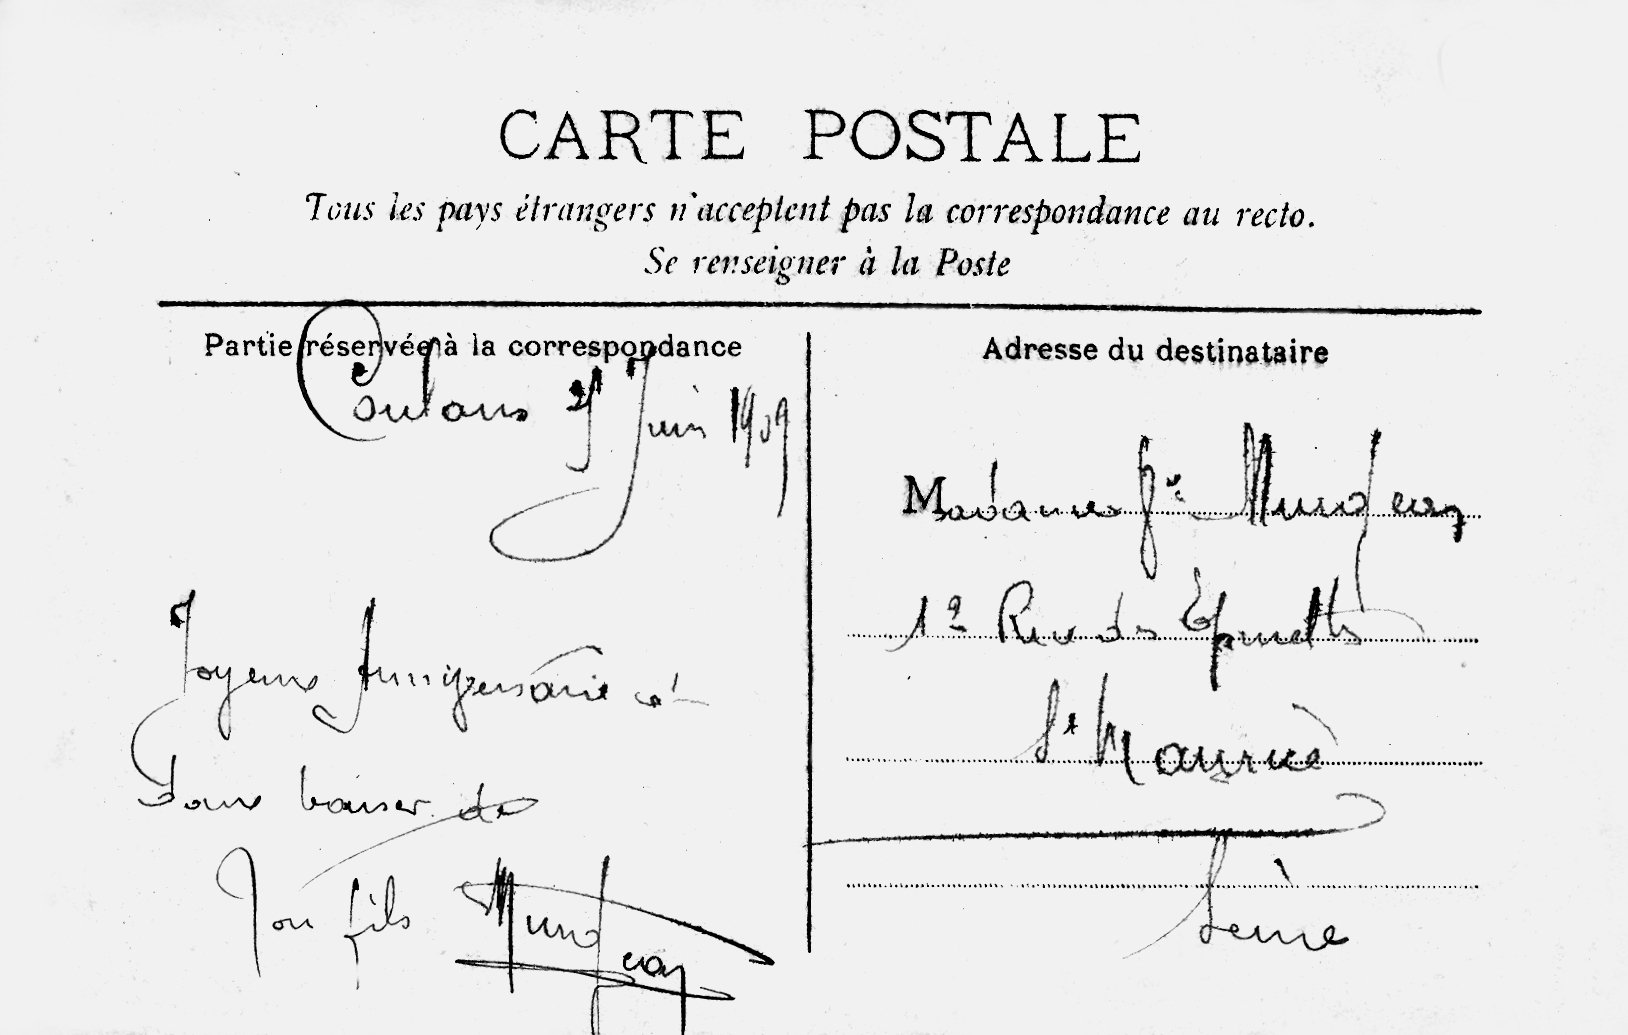 CARTE POSTALE
Tous les pays étrangers n'acceptent pas la correspondance au recto.
Se renseigner à la Poste
Partie réservée à la correspondance
Juin 1909
Joyeux Anniversaire et
Doux baiser de
Ton fils
Adresse du destinataire
Madame
12 Rue des Epinettes
St Maurice
Seine